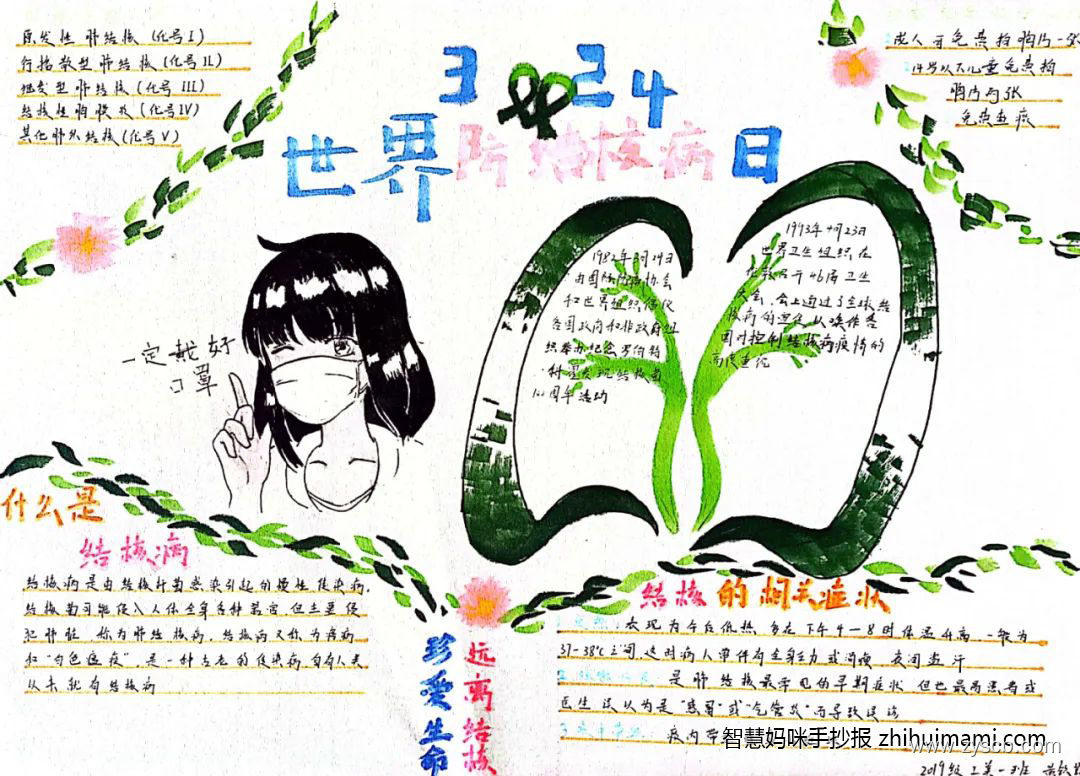 原发性肺结核(代号I)
行播散型肺结核(代号II)
继发型肺结核(代号III)
结核性胸膜炎(代号IV)
其他肺外结核(代号V)
成人可免费拍胸片一张
14岁以下儿童免费拍
胸片与张
免费查痰
3 24
世界防结核病日
1982年3月24日
由国际防痨协会
和世界组织倡议
各国政府和非政府组
织举办纪念罗伯特
科霍发现结核菌
100周年活动
1993年4月23日
世界卫生组织在
伦敦召开46届卫生
大会,会上通过了全球结
核病的
国对控制结核病疫情的
高度重视
一定戴好
口罩
什么是
结核病
结核病是由结核杆菌感染引起的慢性传染病,
结核菌可能侵入人体全身各种器官,但主要侵
犯肺脏,称为肺结核病,结核病又称为痨病
和“白色瘟疫”,是一种古老的传染病,自有人类
以来就有结核病
珍爱生命
远离结核
结核的相关症状
表现为午后低热,多在下午4-8时体温升高,一般为
37-38℃之间,这时病人常伴有全身乏力或消瘦,夜间盗汗
是肺结核最常见的早期症状,但也最易患者或
医生误以为是“感冒”或“气管炎”而导致误诊
3.痰中带血:痰内带
智慧妈咪手抄报 zhihuimami.com
2019级